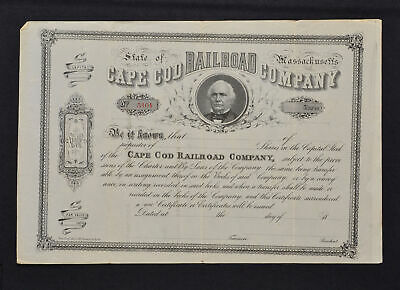 State of Massachusetts
CAPE COD RAILROAD COMPANY
No
Shares
Be it known, that of
proprietor of Shares in the Capital Stock
of the CAPE COD RAILROAD COMPANY, subject to the provi
sions of the Charter and By Laws of the Company the same being transfer
able by an assignment thereof in the Books of said Company or by a convey
ance in writing recorded in said books and when a transfer shall be made or
recorded in the Books of the Company, and this Certificate surrendered
a new Certificate or Certificates will be issued.
Dated at the day of 18
Treasurer President